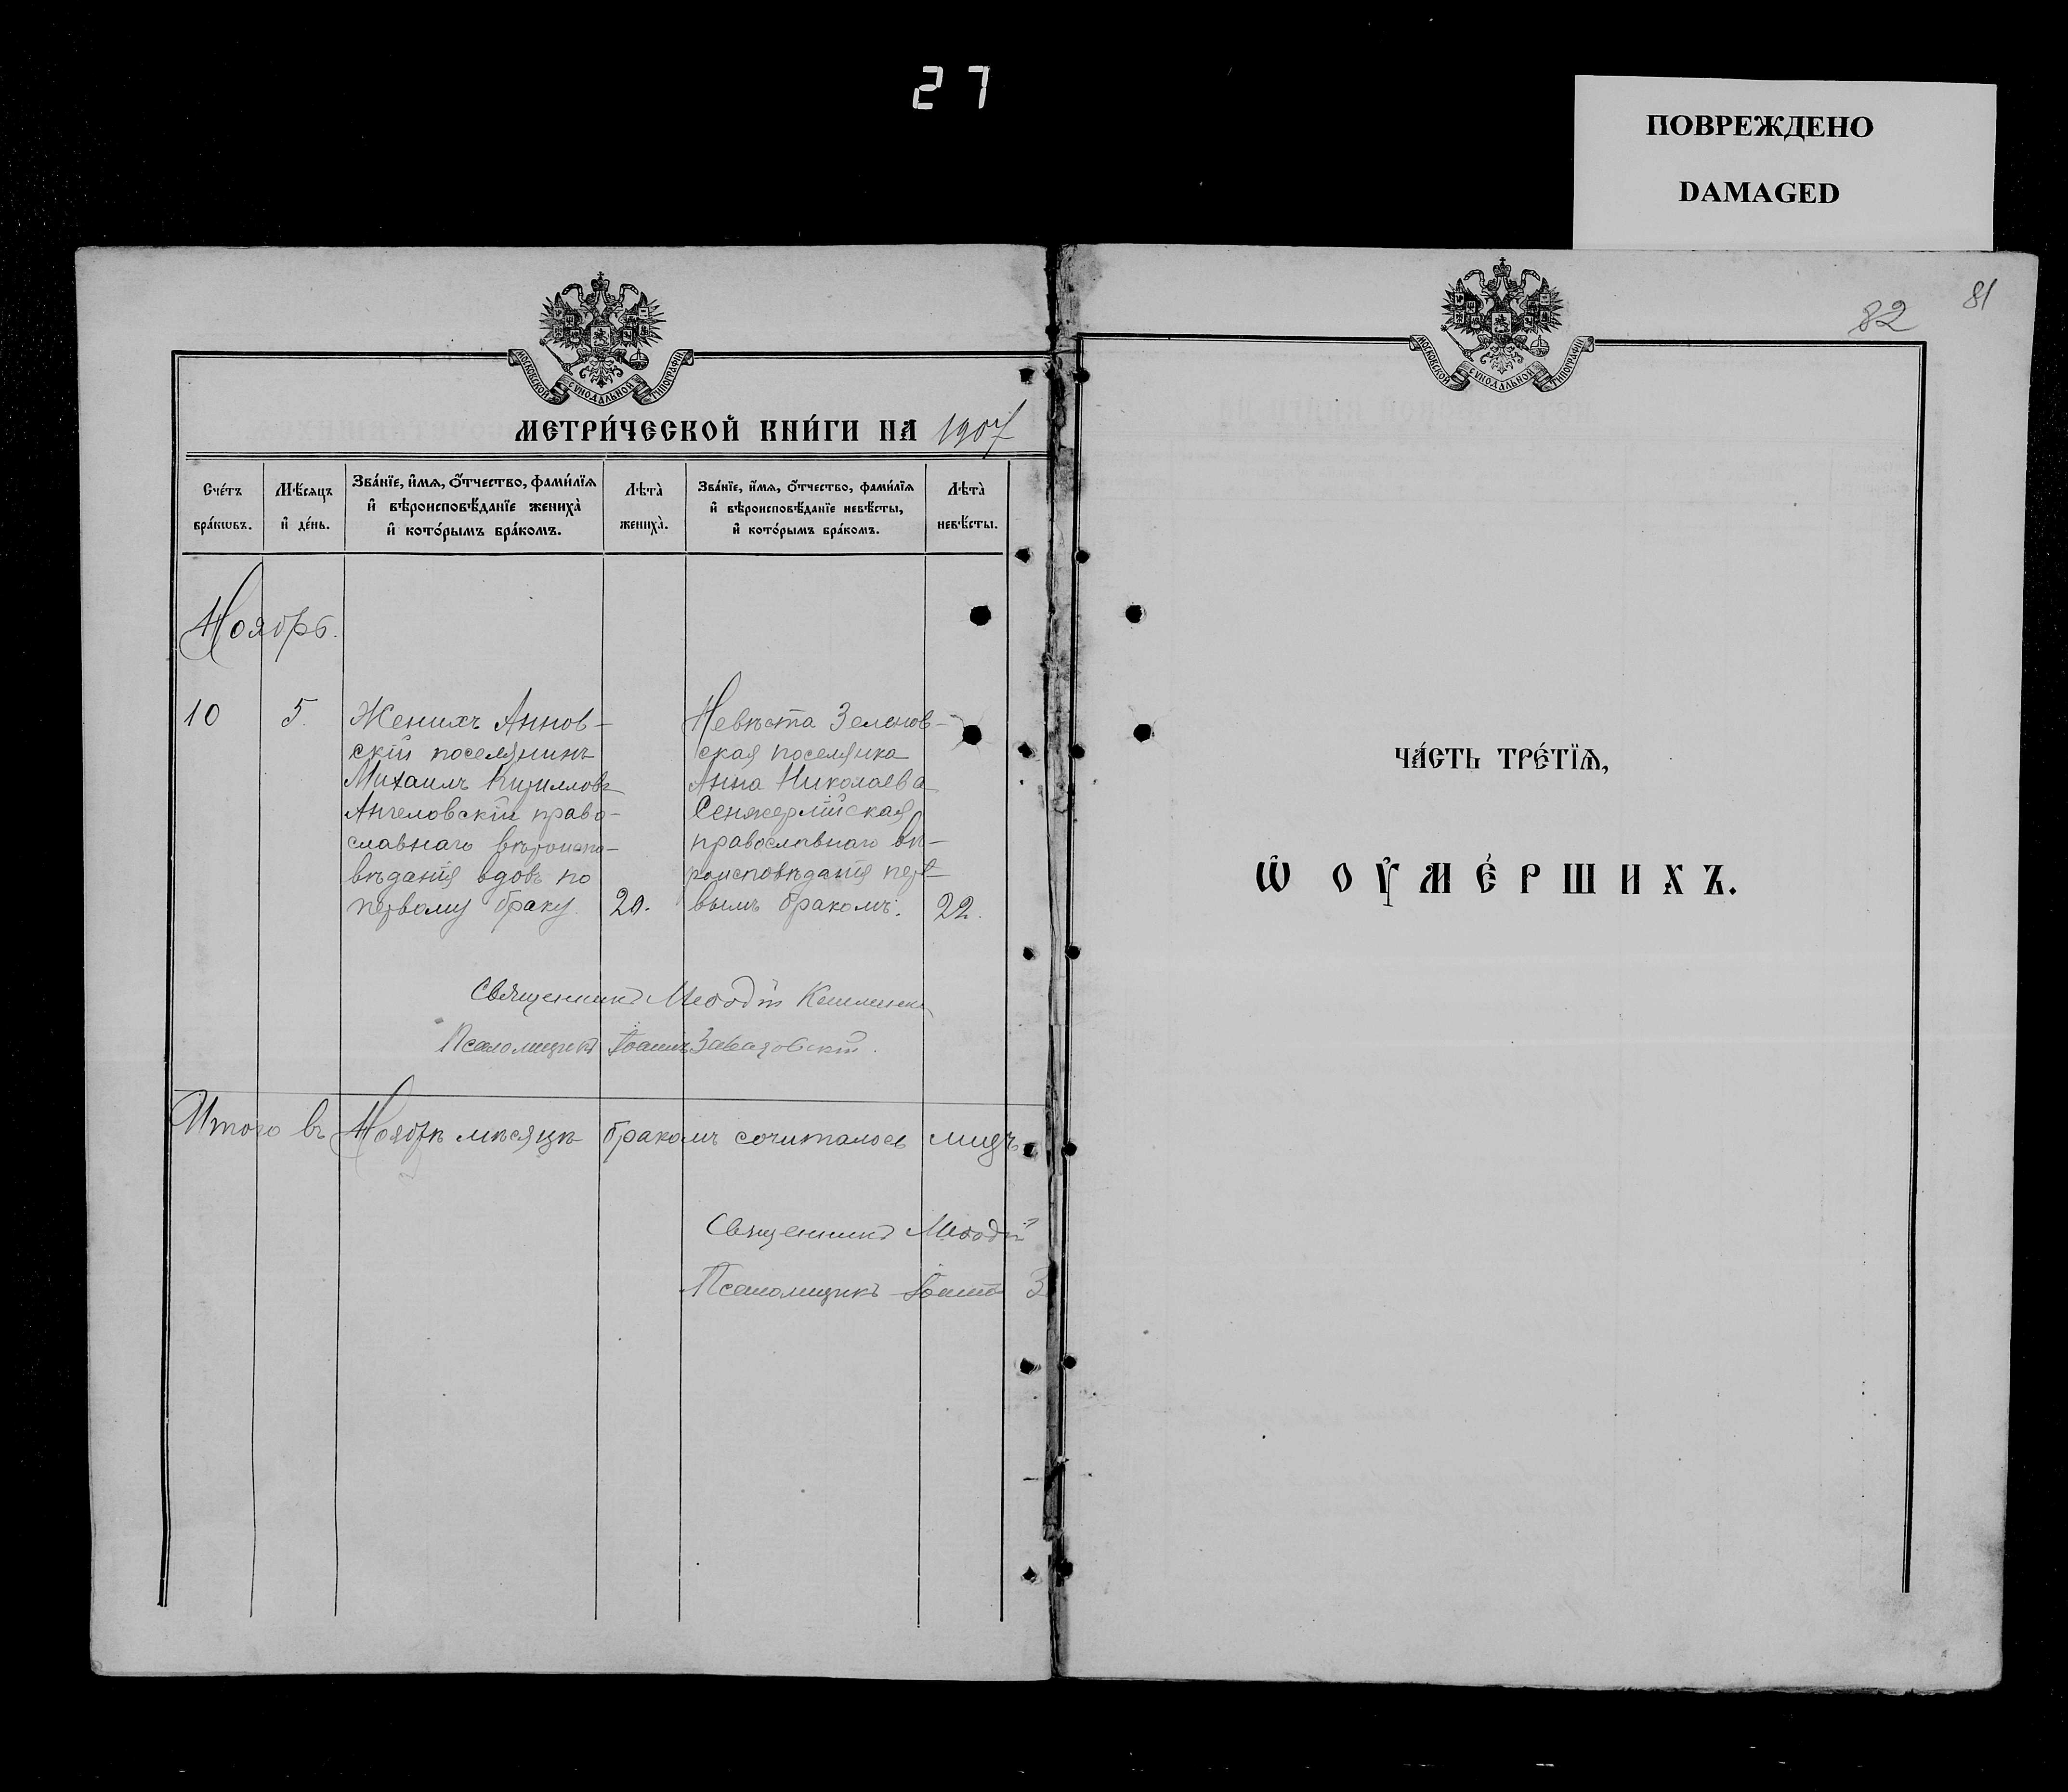 27
ПОВРЕЖДЕНО
DAMAGED
МОСКОВСКОЙ СѴНОДАЛЬНОЙ ТИПОГРАФІИ
МЕТРИ́ЧЕСКОЙ КНИ́ГИ НА 1907
Сче́тъ бра́кѡвъ.
Мѣ́сяцъ и҆ де́нь.
Зва́нїе, и҆́мѧ, ѻ҆́тчество, фами́лїѧ
и҆ вѣроисповѣ́данїе жениха̀
и҆ кото́рымъ бра́комъ.
Лѣта̀ жениха̀.
Зва́нїе, и҆́мѧ, ѻ҆́тчество, фами́лїѧ
и҆ вѣроисповѣ́данїе невѣ́сты,
и҆ кото́рымъ бра́комъ.
Лѣта̀ невѣ́сты.
Ноябрь.
10
5.
Женихъ Аннов-
скій поселянинъ
Михаилъ Кирилловъ
Ангеловскій право-
славнаго вѣроиспо-
вѣданія вдовъ по
первому браку.
Невѣста Зеленов-
ская поселянка
Анна Николаева
православнаго вѣ-
роисповѣданія пер-
вымъ бракомъ.
22.
Священникъ Меѳодій
Псаломщикъ Іоаннъ Завадовскій.
Итого въ Ноябрѣ мѣсяцѣ бракомъ сочиталось лицъ
Священникъ Меѳодій
Псаломщикъ Іоаннъ З
МОСКОВСКОЙ СѴНОДАЛЬНОЙ ТИПОГРАФІИ
82
81
ЧА́СТЬ ТРЕ́ТЇѦ,
Ѡ҆ ОУ҆МЕ́РШИХЪ.